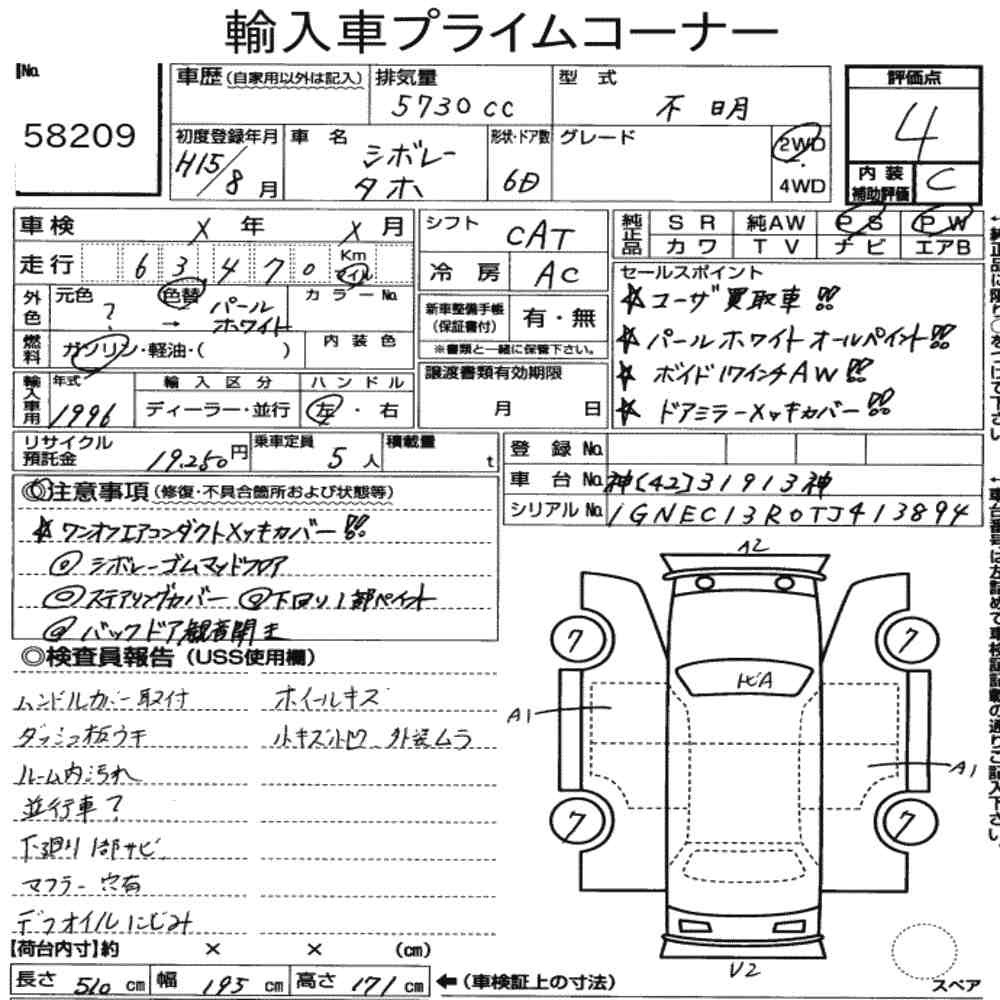 輸入車プライムコーナー
No.
58209
車歴 (自家用以外は記入)
排気量
5730cc
型式
不明
評価点
4
初度登録年月
H15/8月
車名
シボレー
タホ
形状・ドア数
6D
グレード
2WD
・
4WD
内装
補助評価
C
車検 X 年 X 月
走行 63470 Km
マイル
シフト
CAT
冷房 AC
純正品
SR 純AW PS PW
カワ TV ナビ エアB
外色
元色
?
色替
→ パール
ホワイト
カラーNo.
燃料
ガソリン・軽油・( )
内装色
新車整備手帳
(保証書付)
有・無
※書類と一緒に保管下さい。
セールスポイント
☆ユーザ買取車!!
☆パールホワイトオールペイント!!
☆ボイド17インチAW!!
☆ドアミラーメッキカバー!!
輸入車用
年式
1996
輸入区分
ディーラー・並行
ハンドル
左・右
譲渡書類有効期限
月 日
リサイクル
預託金
19,250円
乗車定員
5人
積載量
t
登録No.
車台No. 神[42]31913神
シリアルNo. 1GNEC13R0TJ413894
◎注意事項 (修復・不具合箇所および状態等)
☆ワンオフエアコンダクトメッキカバー!!
◎シボレーゴムマッドフロア
◎ステアリングカバー ◎下回り1部ペイント
◎バックドア観音開き
◎検査員報告 (USS使用欄)
ハンドルカバー取付
ダッシュ板ウキ
ルーム内汚れ
並行車?
下廻り1部サビ
マフラー穴有
デフオイルにじみ
ホイールキズ
小キズ小凹 外装ムラ
A2
7
7
7
7
トビA
A1
A1
U2
スペア
【荷台内寸】約 × × (cm)
長さ 510 cm 幅 195 cm 高さ 171 cm
←(車検証上の寸法)
↑純正品に限り○をつけて下さい。
↑車台番号は左詰めで車検証記載の通りご記入下さい。